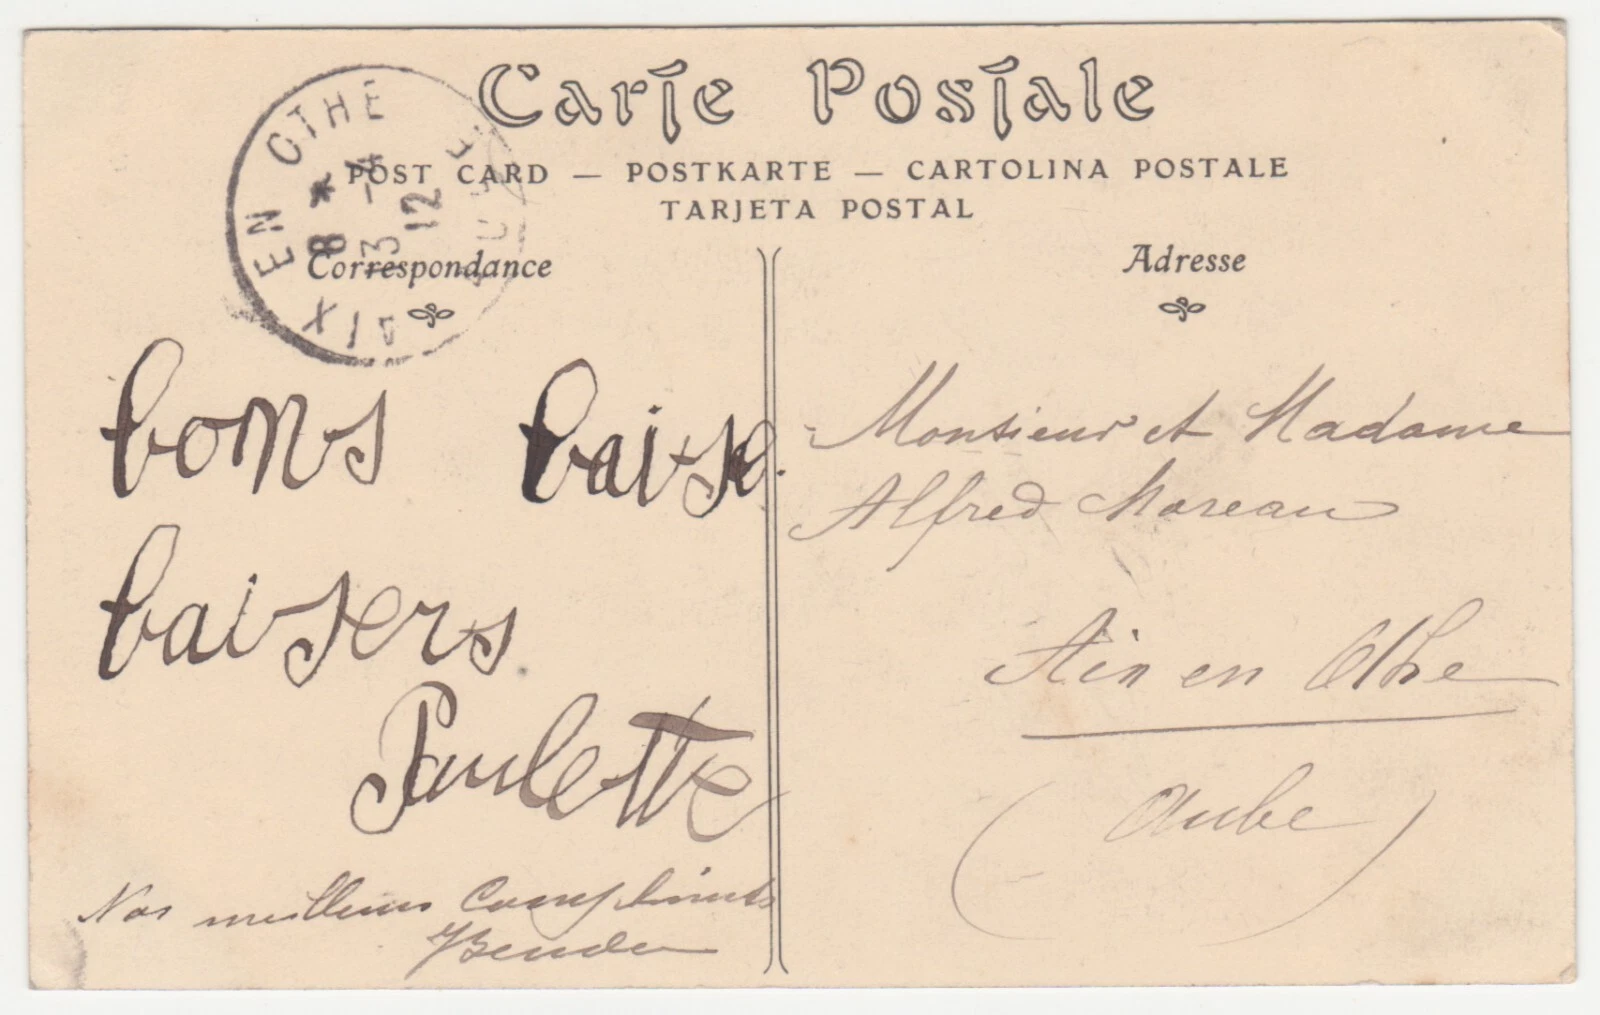 Carte Postale
POST CARD — POSTKARTE — CARTOLINA POSTALE
TARJETA POSTAL
AIX EN OTHE AUBE
8 * -4
13
12
Correspondance
Adresse
bons baise.
baisers
Paulette
Nos meilleurs Compliments
Monsieur et Madame
Alfred Moreau
Aix en Othe
(Aube)